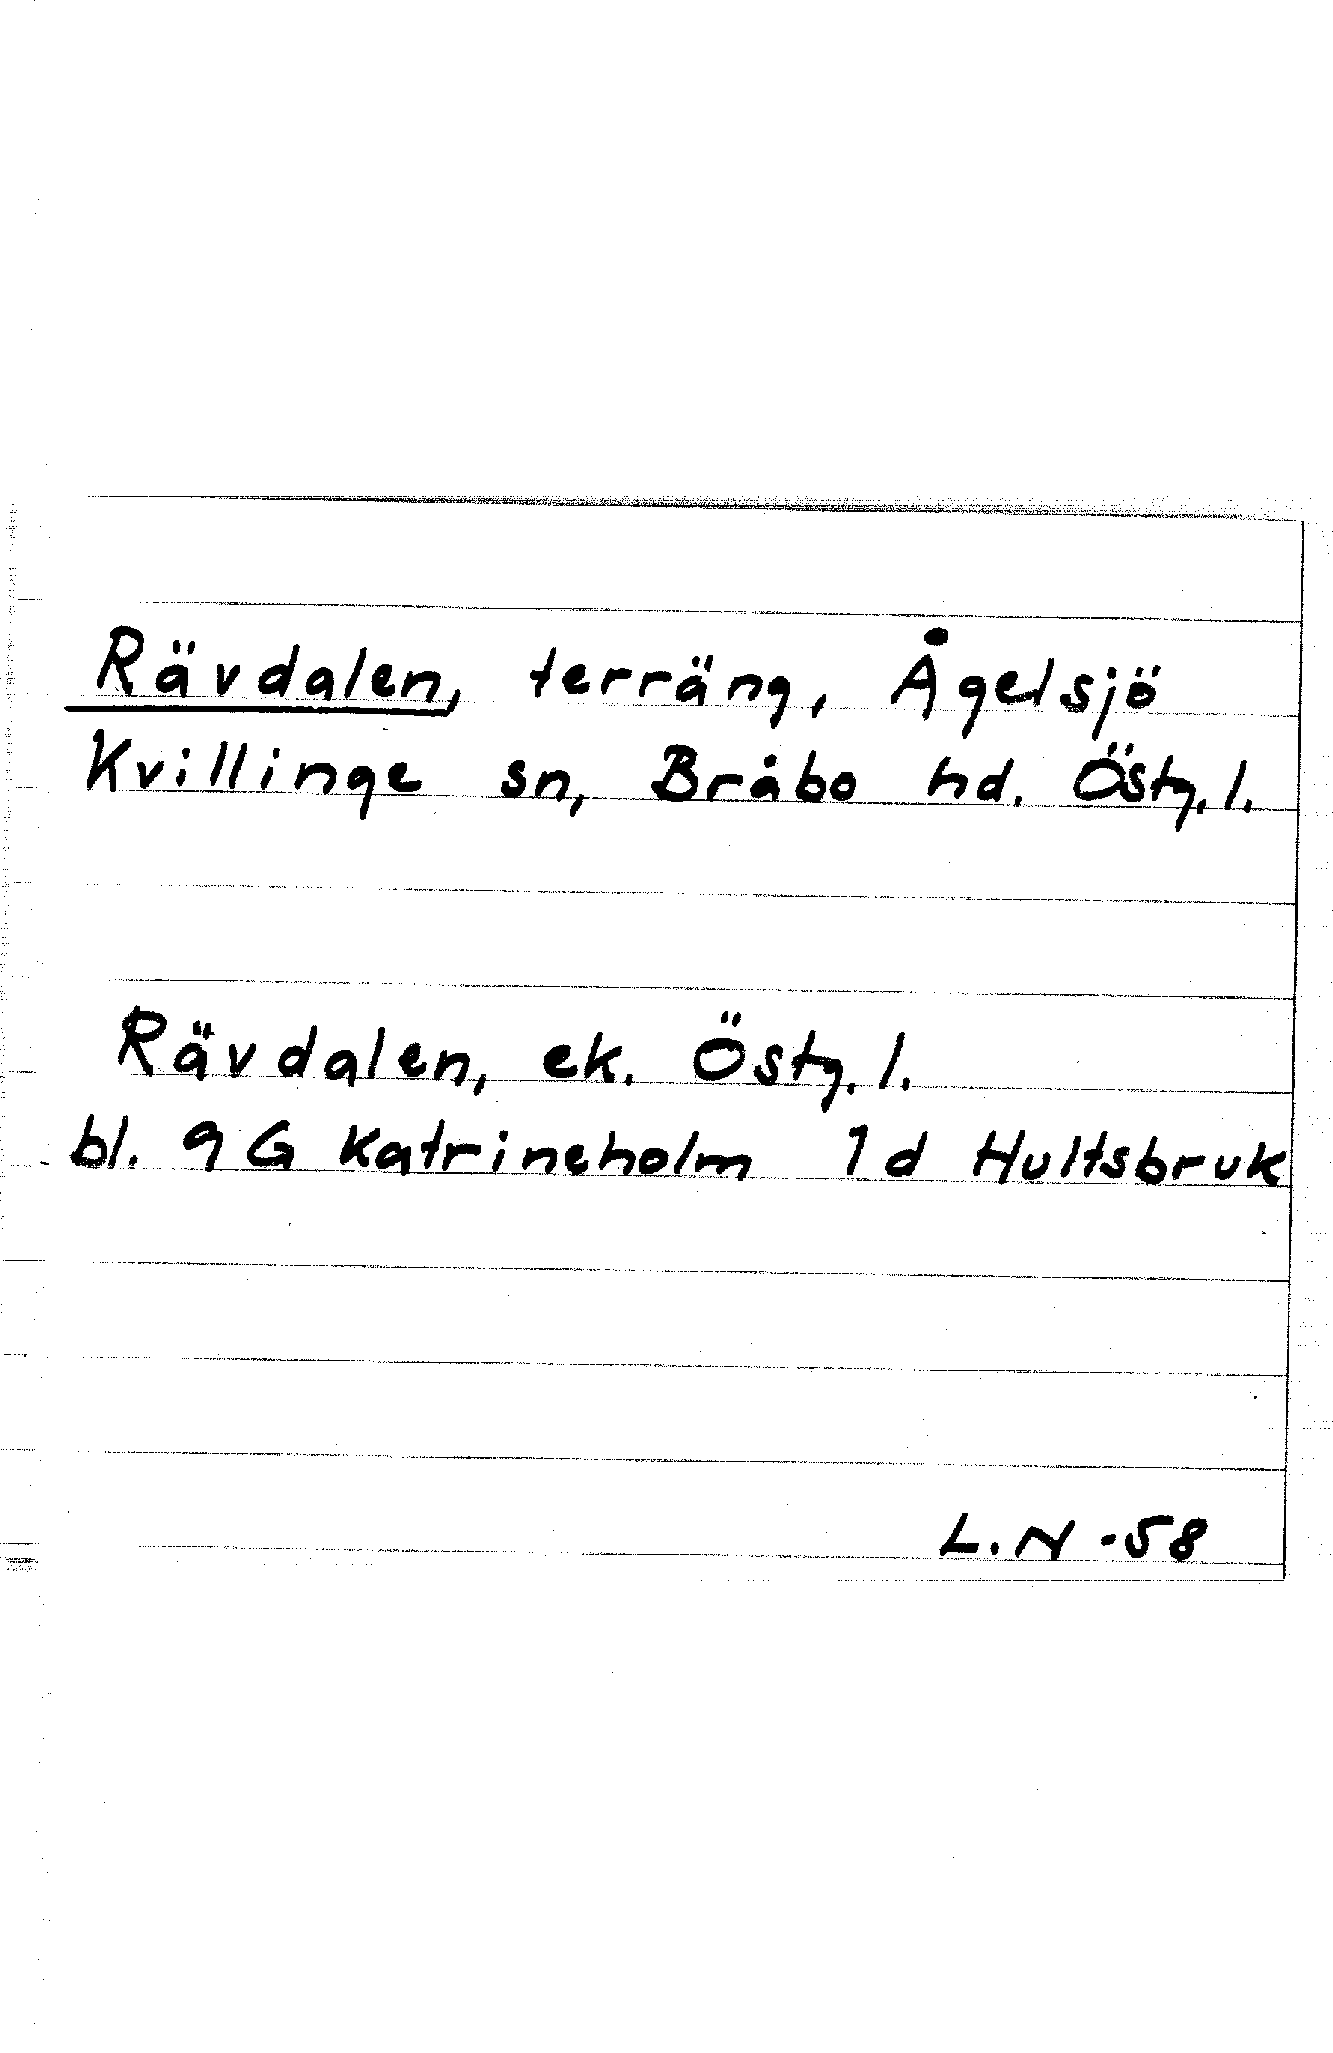 Rävdalen, terräng, Ågelsjö
Kvillinge sn, Bråbo hd. Östg. l.
Rävdalen, ek. Östg. l.
bl. 9 G Katrineholm 1 d Hultsbruk
L.N -58